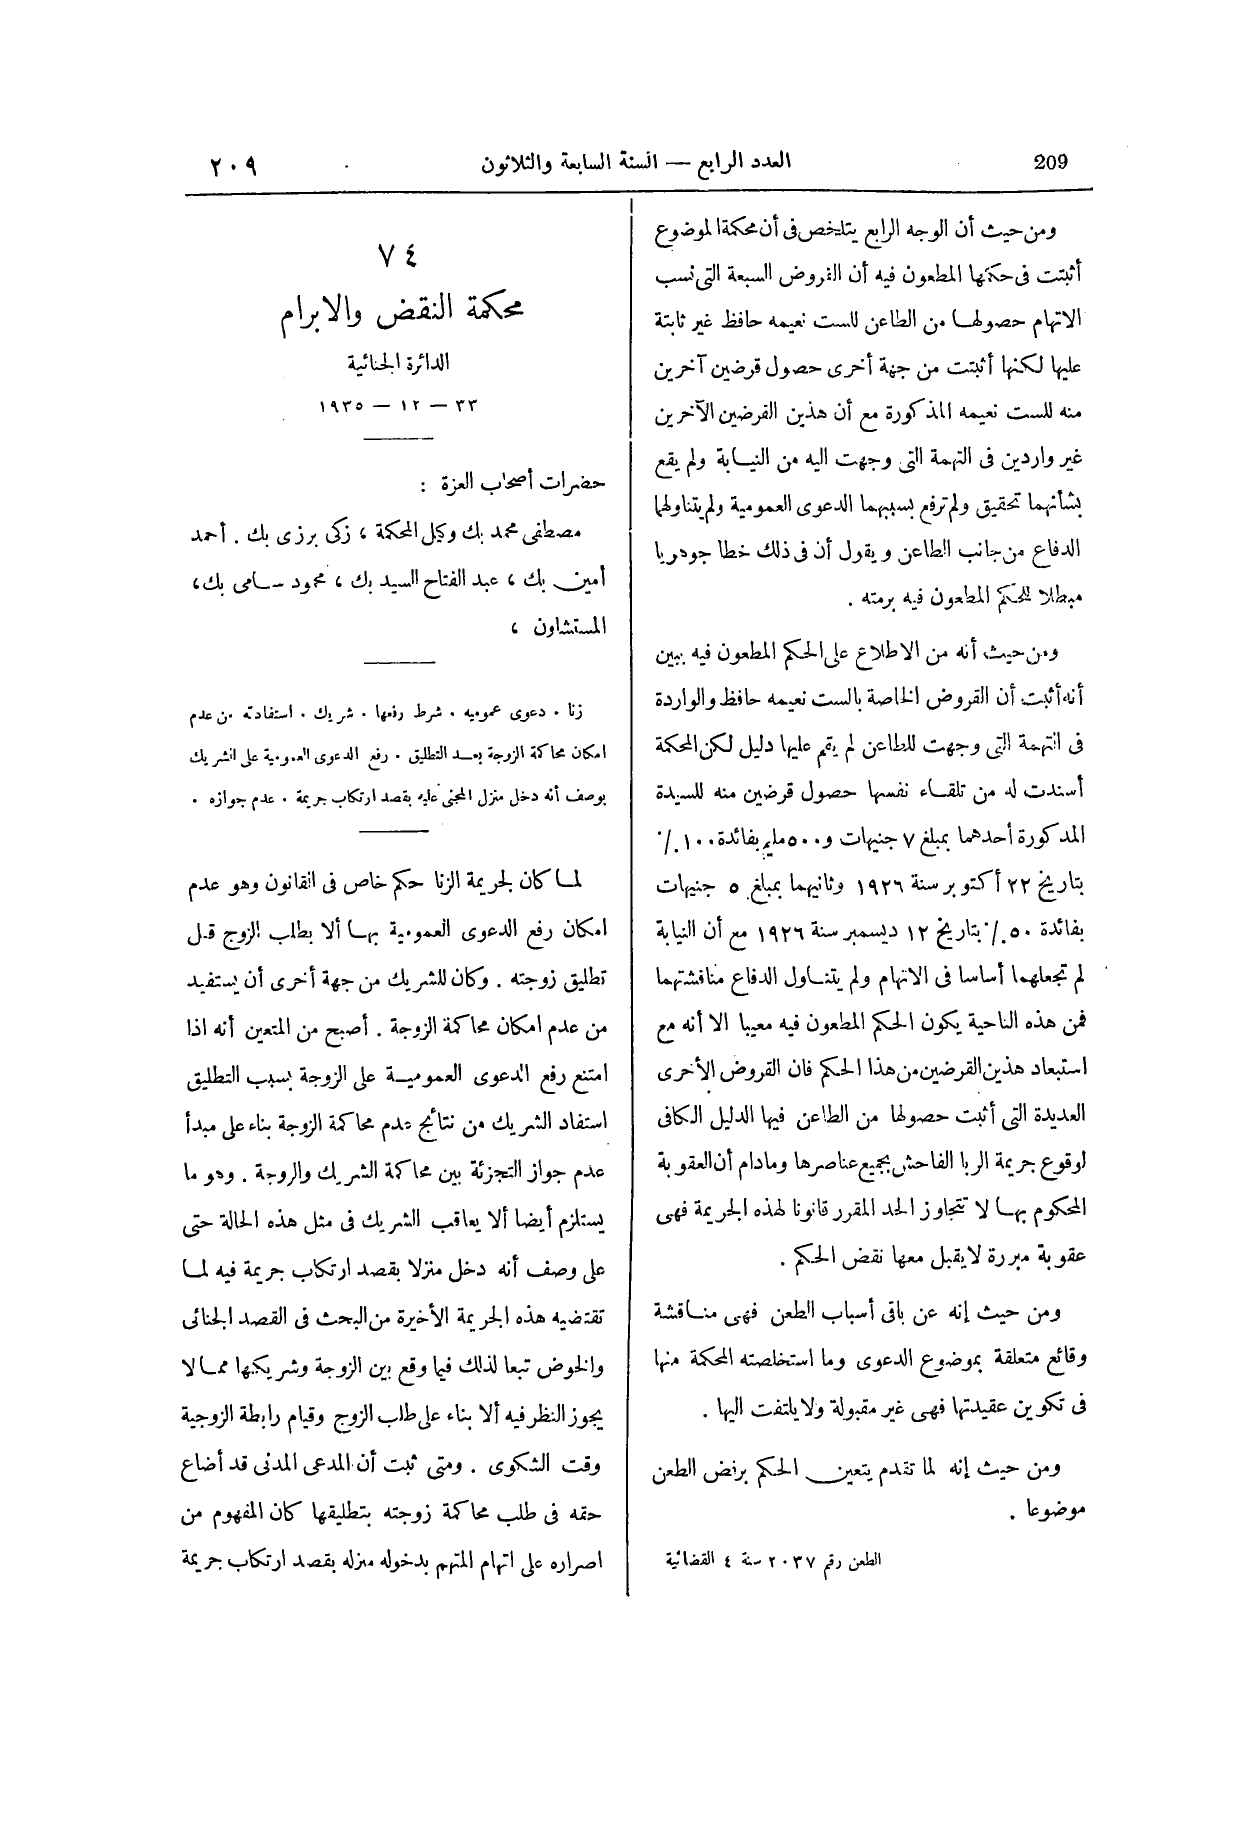 209 العدد الرابع — السنة السابعة والثلاثون ٢٠٩
ومن حيث أن الوجه الرابع يتلخص فى أن محكمة الموضوع
أثبتت فى حكمها المطعون فيه أن القروض السبعة التى نسب
الاتهام حصولها من الطاعن للست نعيمه حافظ غير ثابتة
عليها لكنها أثبتت من جهة أخرى حصول قرضين آخرين
منه للست نعيمه المذكورة مع أن هذين القرضين الآخرين
غير واردين فى التهمة التى وجهت اليه من النيابة ولم يقع
بشأنهما تحقيق ولم ترفع بسببهما الدعوى العمومية ولم يتناولها
الدفاع من جانب الطاعن ويقول أن فى ذلك خطا جوهريا
مبطلا للحكم المطعون فيه برمته .
ومن حيث أنه من الاطلاع على الحكم المطعون فيه يبين
أنه أثبت أن القروض الخاصة بالست نعيمه حافظ والواردة
فى التهمة التى وجهت للطاعن لم يقم عليها دليل لكن المحكمة
أسندت له من تلقاء نفسها حصول قرضين منه للسيدة
المذكورة أحدهما بمبلغ ٧ جنيهات و٥٠٠ مليم بفائدة ١٠٠ ٪
بتاريخ ٢٢ أكتوبر سنة ١٩٢٦ وثانيهما بمبلغ ٥ جنيهات
بفائدة ٥٠ ٪ بتاريخ ١٢ ديسمبر سنة ١٩٢٦ مع أن النيابة
لم تجعلهما أساسا فى الاتهام ولم يتناول الدفاع مناقشتهما
فمن هذه الناحية يكون الحكم المطعون فيه معيبا الا أنه مع
استبعاد هذين القرضين من هذا الحكم فان القروض الأخرى
العديدة التى أثبت حصولها من الطاعن فيها الدليل الكافى
لوقوع جريمة الربا الفاحش بجميع عناصرها ومادام أن العقوبة
المحكوم بها لا تتجاوز الحد المقرر قانونا لهذه الجريمة فهى
عقوبة مبررة لايقبل معها نقض الحكم .
ومن حيث إنه عن باقى أسباب الطعن فهى مناقشة
وقائع متعلقة بموضوع الدعوى وما استخلصته المحكمة منها
فى تكوين عقيدتها فهى غير مقبولة ولا يلتفت اليها .
ومن حيث إنه لما تقدم يتعين الحكم برفض الطعن
موضوعا .
الطعن رقم ٢٠٣٧ سنة ٤ القضائية
٧٤
محكمة النقض والابرام
الدائرة الجنائية
٢٣ — ١٢ — ١٩٣٥
حضرات أصحاب العزة :
مصطفى محمد بك وكيل المحكمة ، زكى برزى بك . أحمد
أمين بك ، عبد الفتاح السيد بك ، محمود سامى بك ،
المستشاون ،
زنا . دعوى عموميه . شرط رفعها . شريك . استفادته من عدم
امكان محاكة الزوجة بعد التطليق . رفع الدعوى العمومية على الشريك
بوصف أنه دخل منزل المجنى عليه بقصد ارتكاب جريمة . عدم جوازه .
لما كان لجريمة الزنا حكم خاص فى القانون وهو عدم
امكان رفع الدعوى العمومية بها ألا بطلب الزوج قبل
تطليق زوجته . وكان للشريك من جهة أخرى أن يستفيد
من عدم امكان محاكمة الزوجة . أصبح من المتعين أنه اذا
امتنع رفع الدعوى العمومية على الزوجة بسبب التطليق
استفاد الشريك من نتائج عدم محاكمة الزوجة بناء على مبدأ
عدم جواز التجزئة بين محاكمة الشريك والزوجة . وهو ما
يستلزم أيضا ألا يعاقب الشريك فى مثل هذه الحالة حتى
على وصف أنه دخل منزلا بقصد ارتكاب جريمة فيه لما
تقتضيه هذه الجريمة الأخيرة من البحث فى القصد الجنائى
والخوض تبعا لذلك فيما وقع بين الزوجة وشريكها مما لا
يجوز النظر فيه ألا بناء على طلب الزوج وقيام رابطة الزوجية
وقت الشكوى . ومتى ثبت أن المدعى المدنى قد أضاع
حقه فى طلب محاكمة زوجته بتطليقها كان المفهوم من
اصراره على اتهام المتهم بدخوله منزله بقصد ارتكاب جريمة